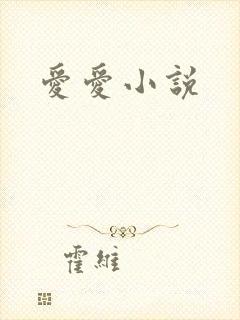 愛愛小說
霍維